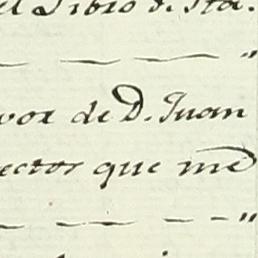 el Libro d. Sta.
— — — "
vor de D. Juan
ector que me
— — — — "